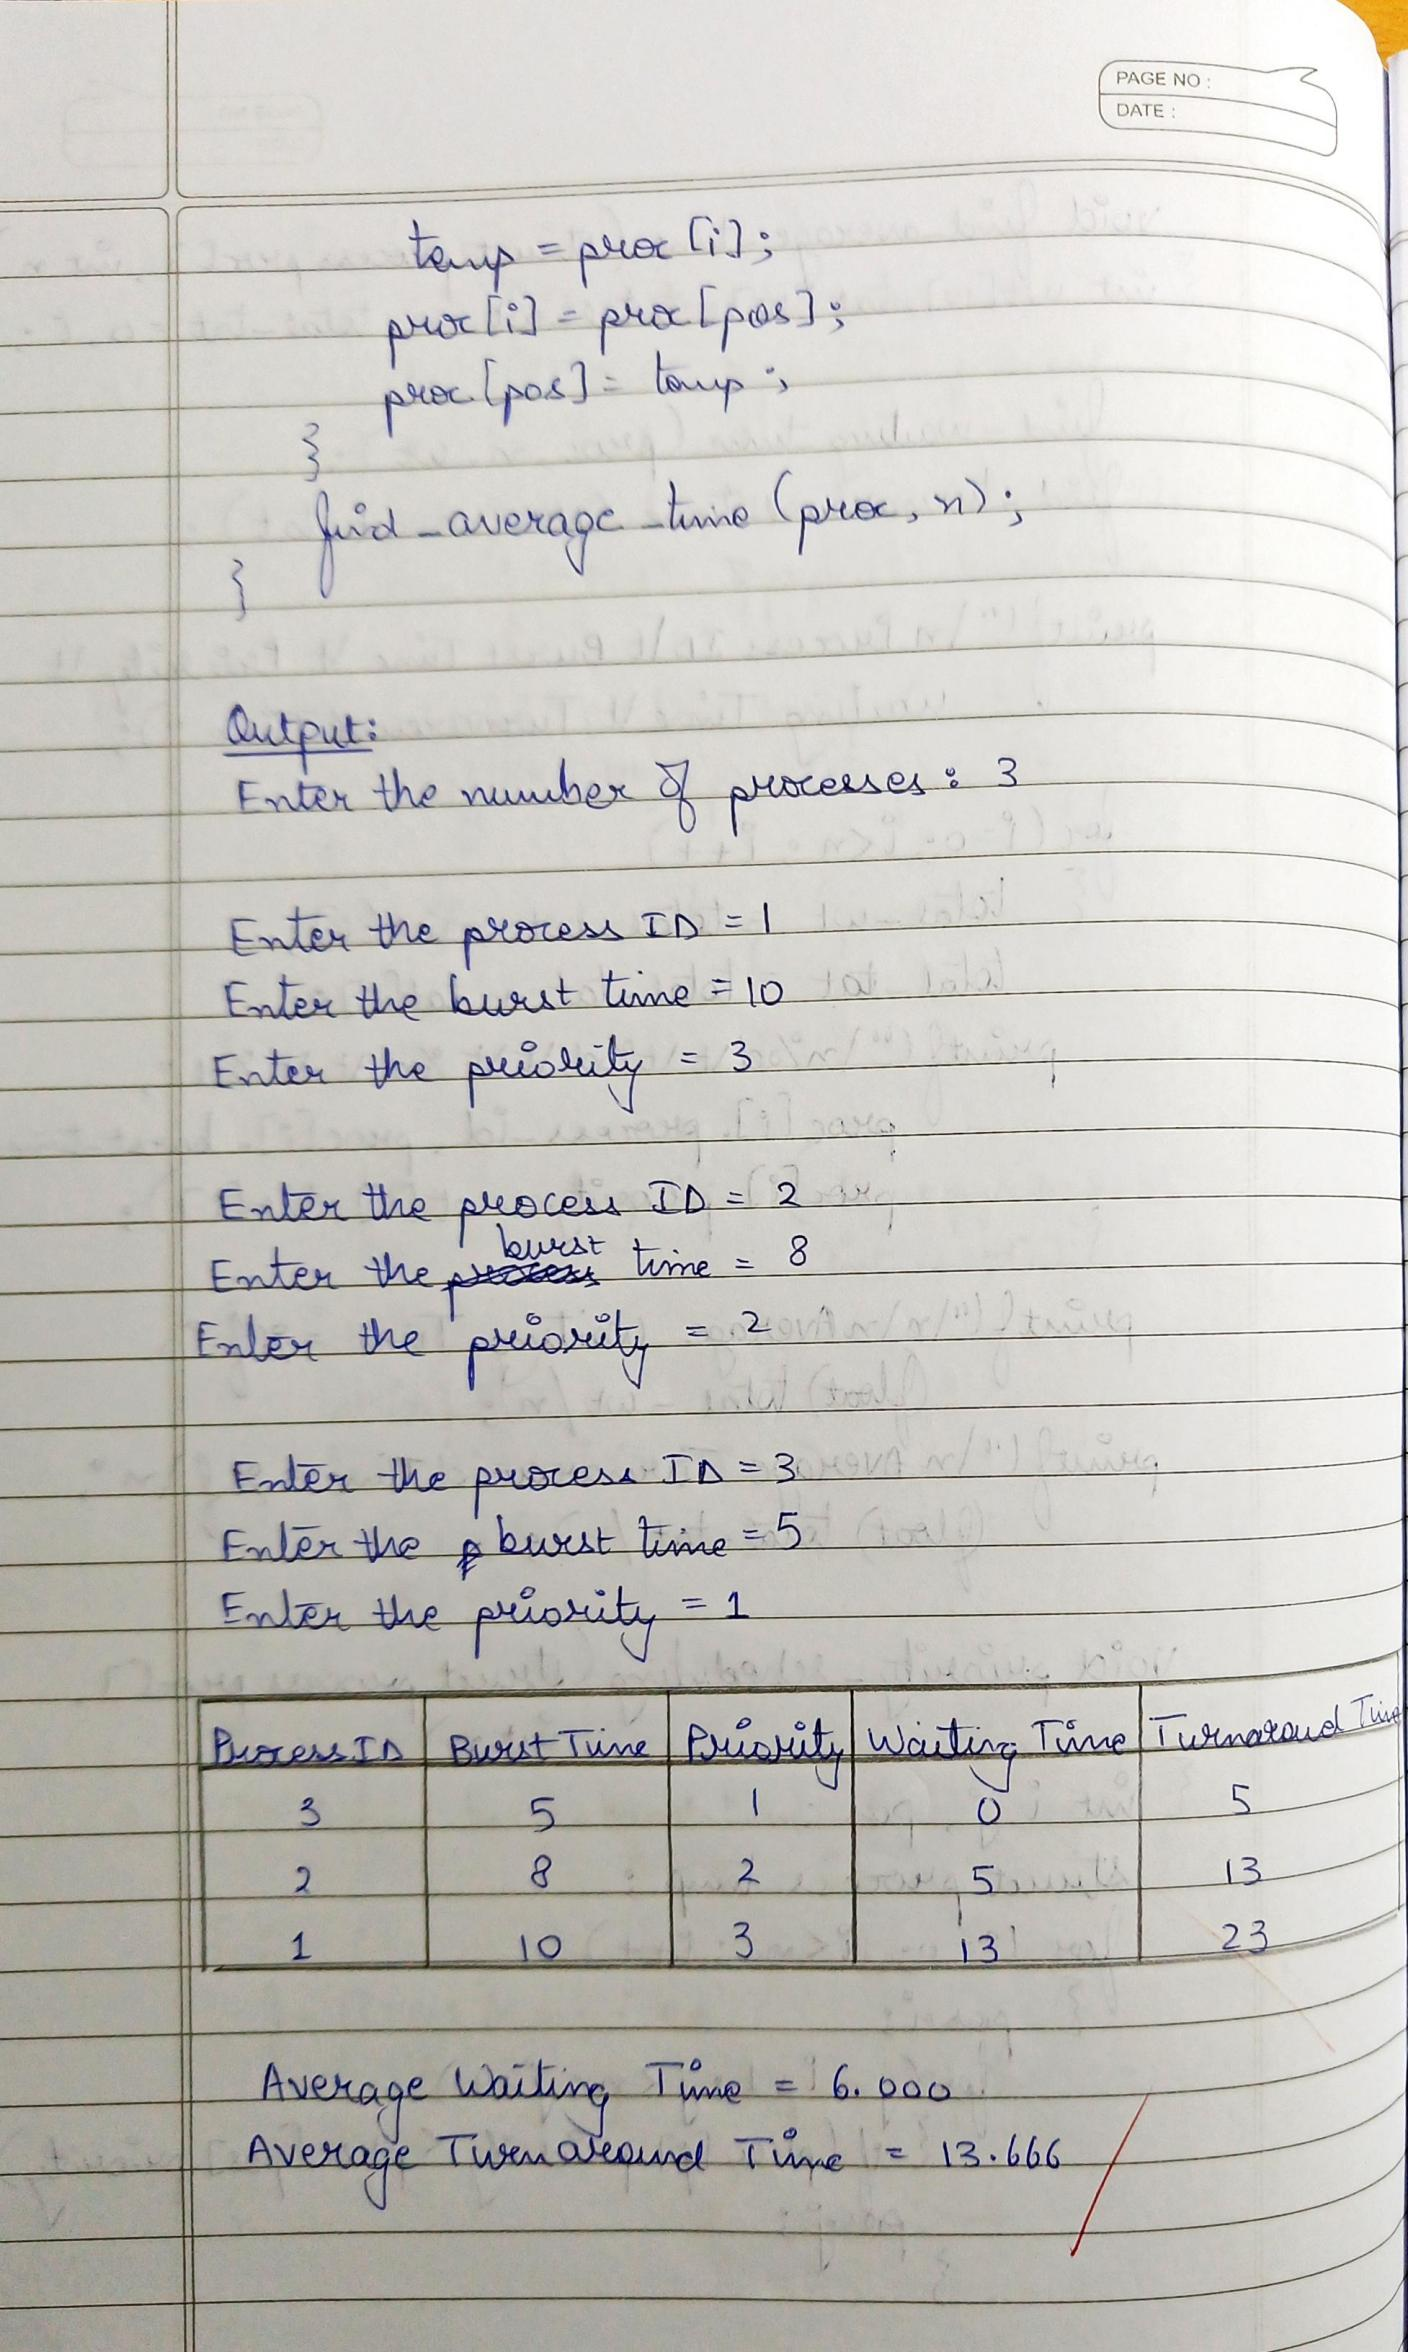 PAGE NO :
DATE :
temp = proc [i];
proc[i] = proc[pos];
proc[pos] = temp ;
}
find_average_time (proc, n);
}
Output:
Enter the number of processes: 3
Enter the process ID = 1
Enter the burst time = 10
Enter the priority = 3
Enter the process ID = 2
Enter the process burst time = 8
Enter the priority = 2
Enter the process ID = 3
Enter the p burst time = 5
Enter the priority = 1
Process ID Burst Time Priority Waiting Time Turnaroud Time
3 5 1 0 5
2 8 2 5 13
1 10 3 13 23
Average Waiting Time = 6.000
Average Turnaround Time = 13.666